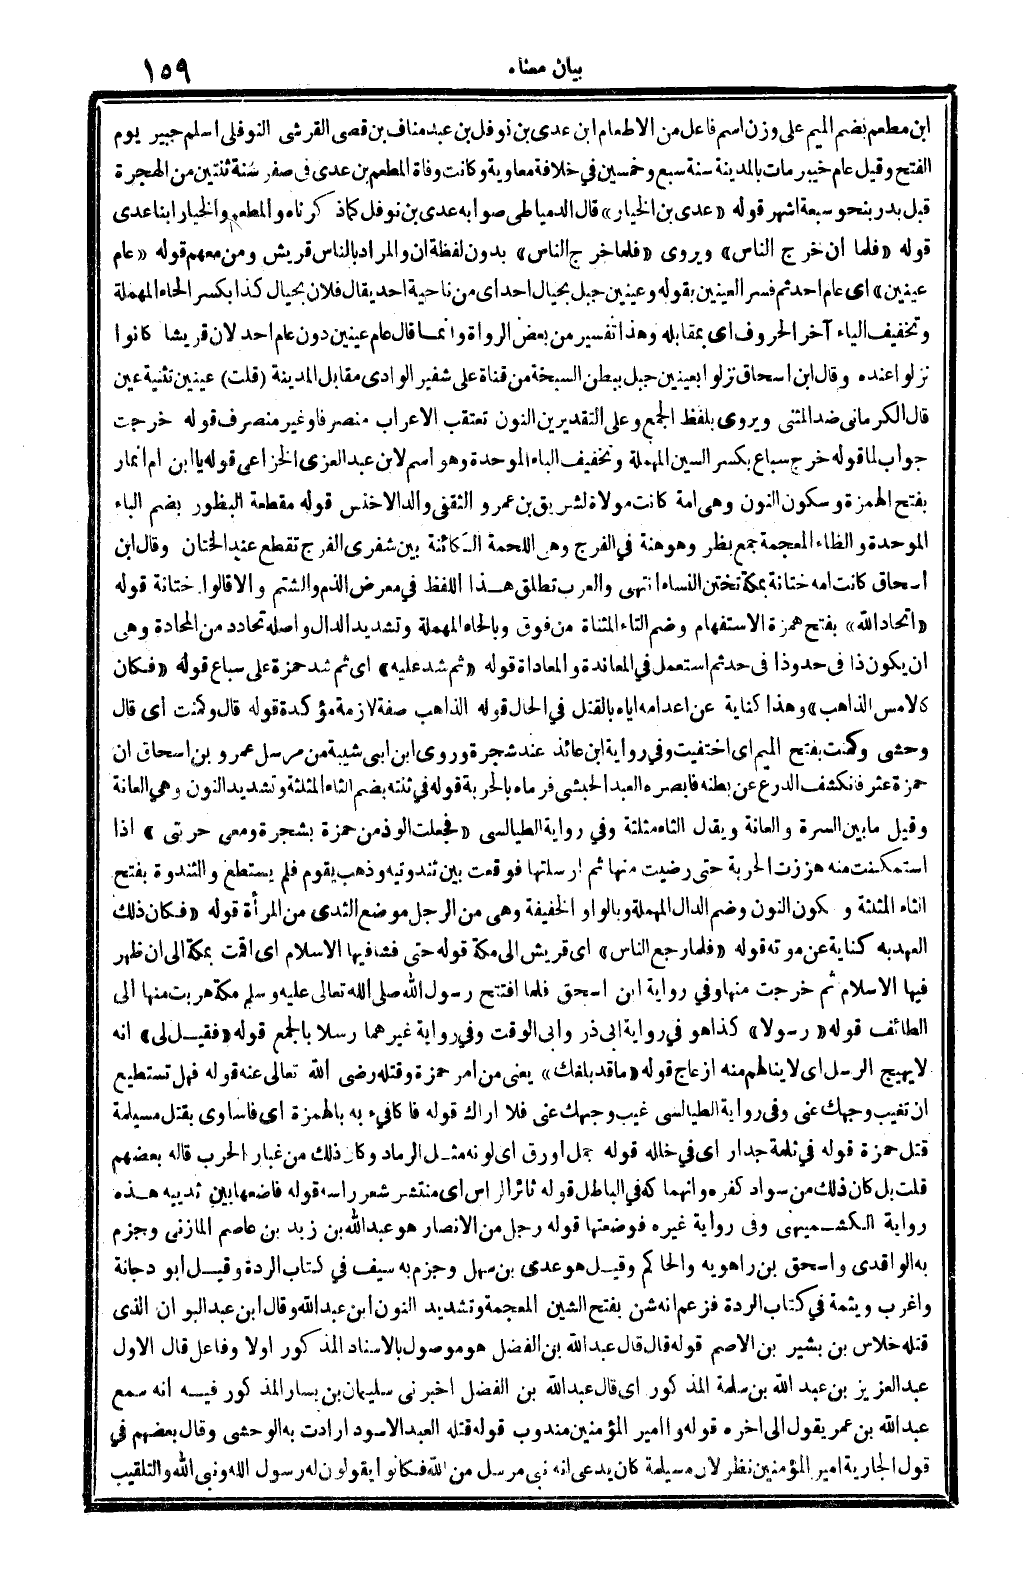 بيان معناه ١٥٩
ابن مطعم بضم الميم على وزن اسم فاعل من الاطعام ابن عدى بن نوفل بن عبد مناف بن قصى القرشى النوفلى اسلم جبير يوم
الفتح وقيل عام خيبر مات بالمدينة سنة سبع وخمسين في خلافة معاوية وكانت وفاة المطعم بن عدى فى صفر سنة ثنتين من الهجرة
قبل بدر بنحو سبعة اشهر قوله «عدى بن الخيار» قال الدمياطى صوابه عدى بن نوفل كما ذكرناه والمطعم والخيار ابنا عدى
قوله «فلما ان خرج الناس» ويروى «فلما خرج الناس» بدون لفظة ان والمراد بالناس قريش ومن معهم قوله «عام
عينين» اى عام احد ثم فسر العينين بقوله وعينين جبل بحيال احد اى من ناحية احد يقال فلان بحيال كذا بكسر الحاء المهملة
وتخفيف الياء آخر الحروف اى بمقابله وهذا تفسير من بعض الرواة وانما قال عام عينين دون عام احد لان قريشا كانوا
نزلوا عنده وقال ابن اسحاق نزلوا بعينين جبل ببطن السبخة من قناة على شفير الوادى مقابل المدينة (قلت) عينين تثنية عين
قال الكرمانى ضد المثنى ويروى بلفظ الجمع وعلى التقديرين النون تعتقب الاعراب منصرفا وغير منصرف قوله خرجت
جواب لما قوله خرج سباع بكسر السين المهملة وتخفيف الباء الموحدة وهو اسم لابن عبد العزى الخزاعى قوله يا ابن ام انمار
بفتح الهمزة وسكون النون وهى امة كانت مولاة لشريق بن عمرو الثقفى والد الاخنس قوله مقطعة البظور بضم الباء
الموحدة والظاء المعجمة جمع بظر وهو هنة في الفرج وهى اللحمة الكائنة بين شفرى الفرج تقطع عند الختان وقال ابن
اسحاق كانت امه ختانة بمكة تختن النساء انتهى والعرب تطلق هذا اللفظ في معرض الذم والشتم والا قالوا ختانة قوله
«اتحاد الله» بفتح همزة الاستفهام وضم التاء المثناة من فوق وبالحاء المهملة وتشديد الدال واصله تحادد من المحادة وهى
ان يكون ذا فى حد وذا فى حد ثم استعمل في المعاندة والمعاداة قوله «ثم شد عليه» اى ثم شد حمزة على سباع قوله «فكان
كالامس الذاهب» وهذا كناية عن اعدامه اياه بالقتل في الحال قوله الذاهب صفة لازمة مؤكدة قوله قال وكمنت أى قال
وحشى وكمنت بفتح الميم اى اختفيت وفي رواية ابن عائذ عند شجرة وروى ابن ابى شيبة من مرسل عمرو بن اسحاق ان
حمزة عثر فانكشف الدرع عن بطنه فابصره العبد الحبشى فرماه بالحربة قوله في ثنته بضم الثاء المثلثة وتشديد النون وهي العانة
وقيل ما بين السرة والعانة ويقال الثاء مثلثة وفي رواية الطيالسى «فجعلت الوذ من حمزة بشجرة ومعى حربتى» اذا
استمكنت منه هززت الحربة حتى رضيت منها ثم ارسلتها فوقعت بين ثندوتيه وذهب يقوم فلم يستطع والثندوة بفتح
الثاء المثلثة وسكون النون وضم الدال المهملة وبالواو الخفيفة وهى من الرجل موضع الثدى من المرأة قوله «فكان ذلك
العهد به كناية عن موته قوله «فلما رجع الناس» اى قريش الى مكة قوله حتى فشا فيها الاسلام اى اقمت بمكة الى ان ظهر
فيها الاسلام ثم خرجت منها وفي رواية ابن اسحق فلما افتتح رسول الله صلى الله تعالى عليه وسلم مكة هربت منها الى
الطائف قوله «رسولا» كذا هو في رواية ابى ذر وابى الوقت وفي رواية غيرهما رسلا بالجمع قوله «فقيل لى» انه
لا يهيج الرسل اى لا ينالهم منه ازعاج قوله «ما قد بلغك» يعنى من امر حمزة وقتله رضى الله تعالى عنه قوله فهل تستطيع
ان تغيب وجهك عنى وفى رواية الطيالسى غيب وجهك عنى فلا اراك قوله فاكافىء به بالهمزة اى فاساوى بقتل مسيلمة
قتل حمزة قوله في ثلمة جدار اى في خلله قوله جمل اورق اى لونه مثل الرماد وكان ذلك من غبار الحرب قاله بعضهم
قلت بل كان ذلك من سواد كفره وانهماكه في الباطل قوله ثائر الراس اى منتشر شعر راسه قوله فاضعها بين ثدييه هذه
رواية الكشميهنى وفى رواية غيره فوضعتها قوله رجل من الانصار هو عبد الله بن زيد بن عاصم المازنى وجزم
به الواقدى واسحق بن راهويه والحاكم وقيل هو عدى بن سهل وجزم به سيف في كتاب الردة وقيل ابو دجانة
واغرب ويثمة في كتاب الردة فزعم انه شن بفتح الشين المعجمة وتشديد النون ابن عبد الله وقال ابن عبد البر ان الذى
قتله خلاس بن بشير بن الاصم قوله قال قال عبد الله بن الفضل هو موصول بالاسناد المذكور اولا وفاعل قال الاول
عبد العزيز بن عبد الله بن سلمة المذكور اى قال عبد الله بن الفضل اخبرنى سليمان بن يسار المذكور فيه انه سمع
عبد الله بن عمر يقول الى اخره قوله وا امير المؤمنين مندوب قوله قتله العبد الاسود ارادت به الوحشى وقال بعضهم في
قول الجارية امير المؤمنين نظر لان مسيلمة كان يدعى انه نبى مرسل من الله فكانوا يقولون له رسول الله ونبى الله والتلقيب